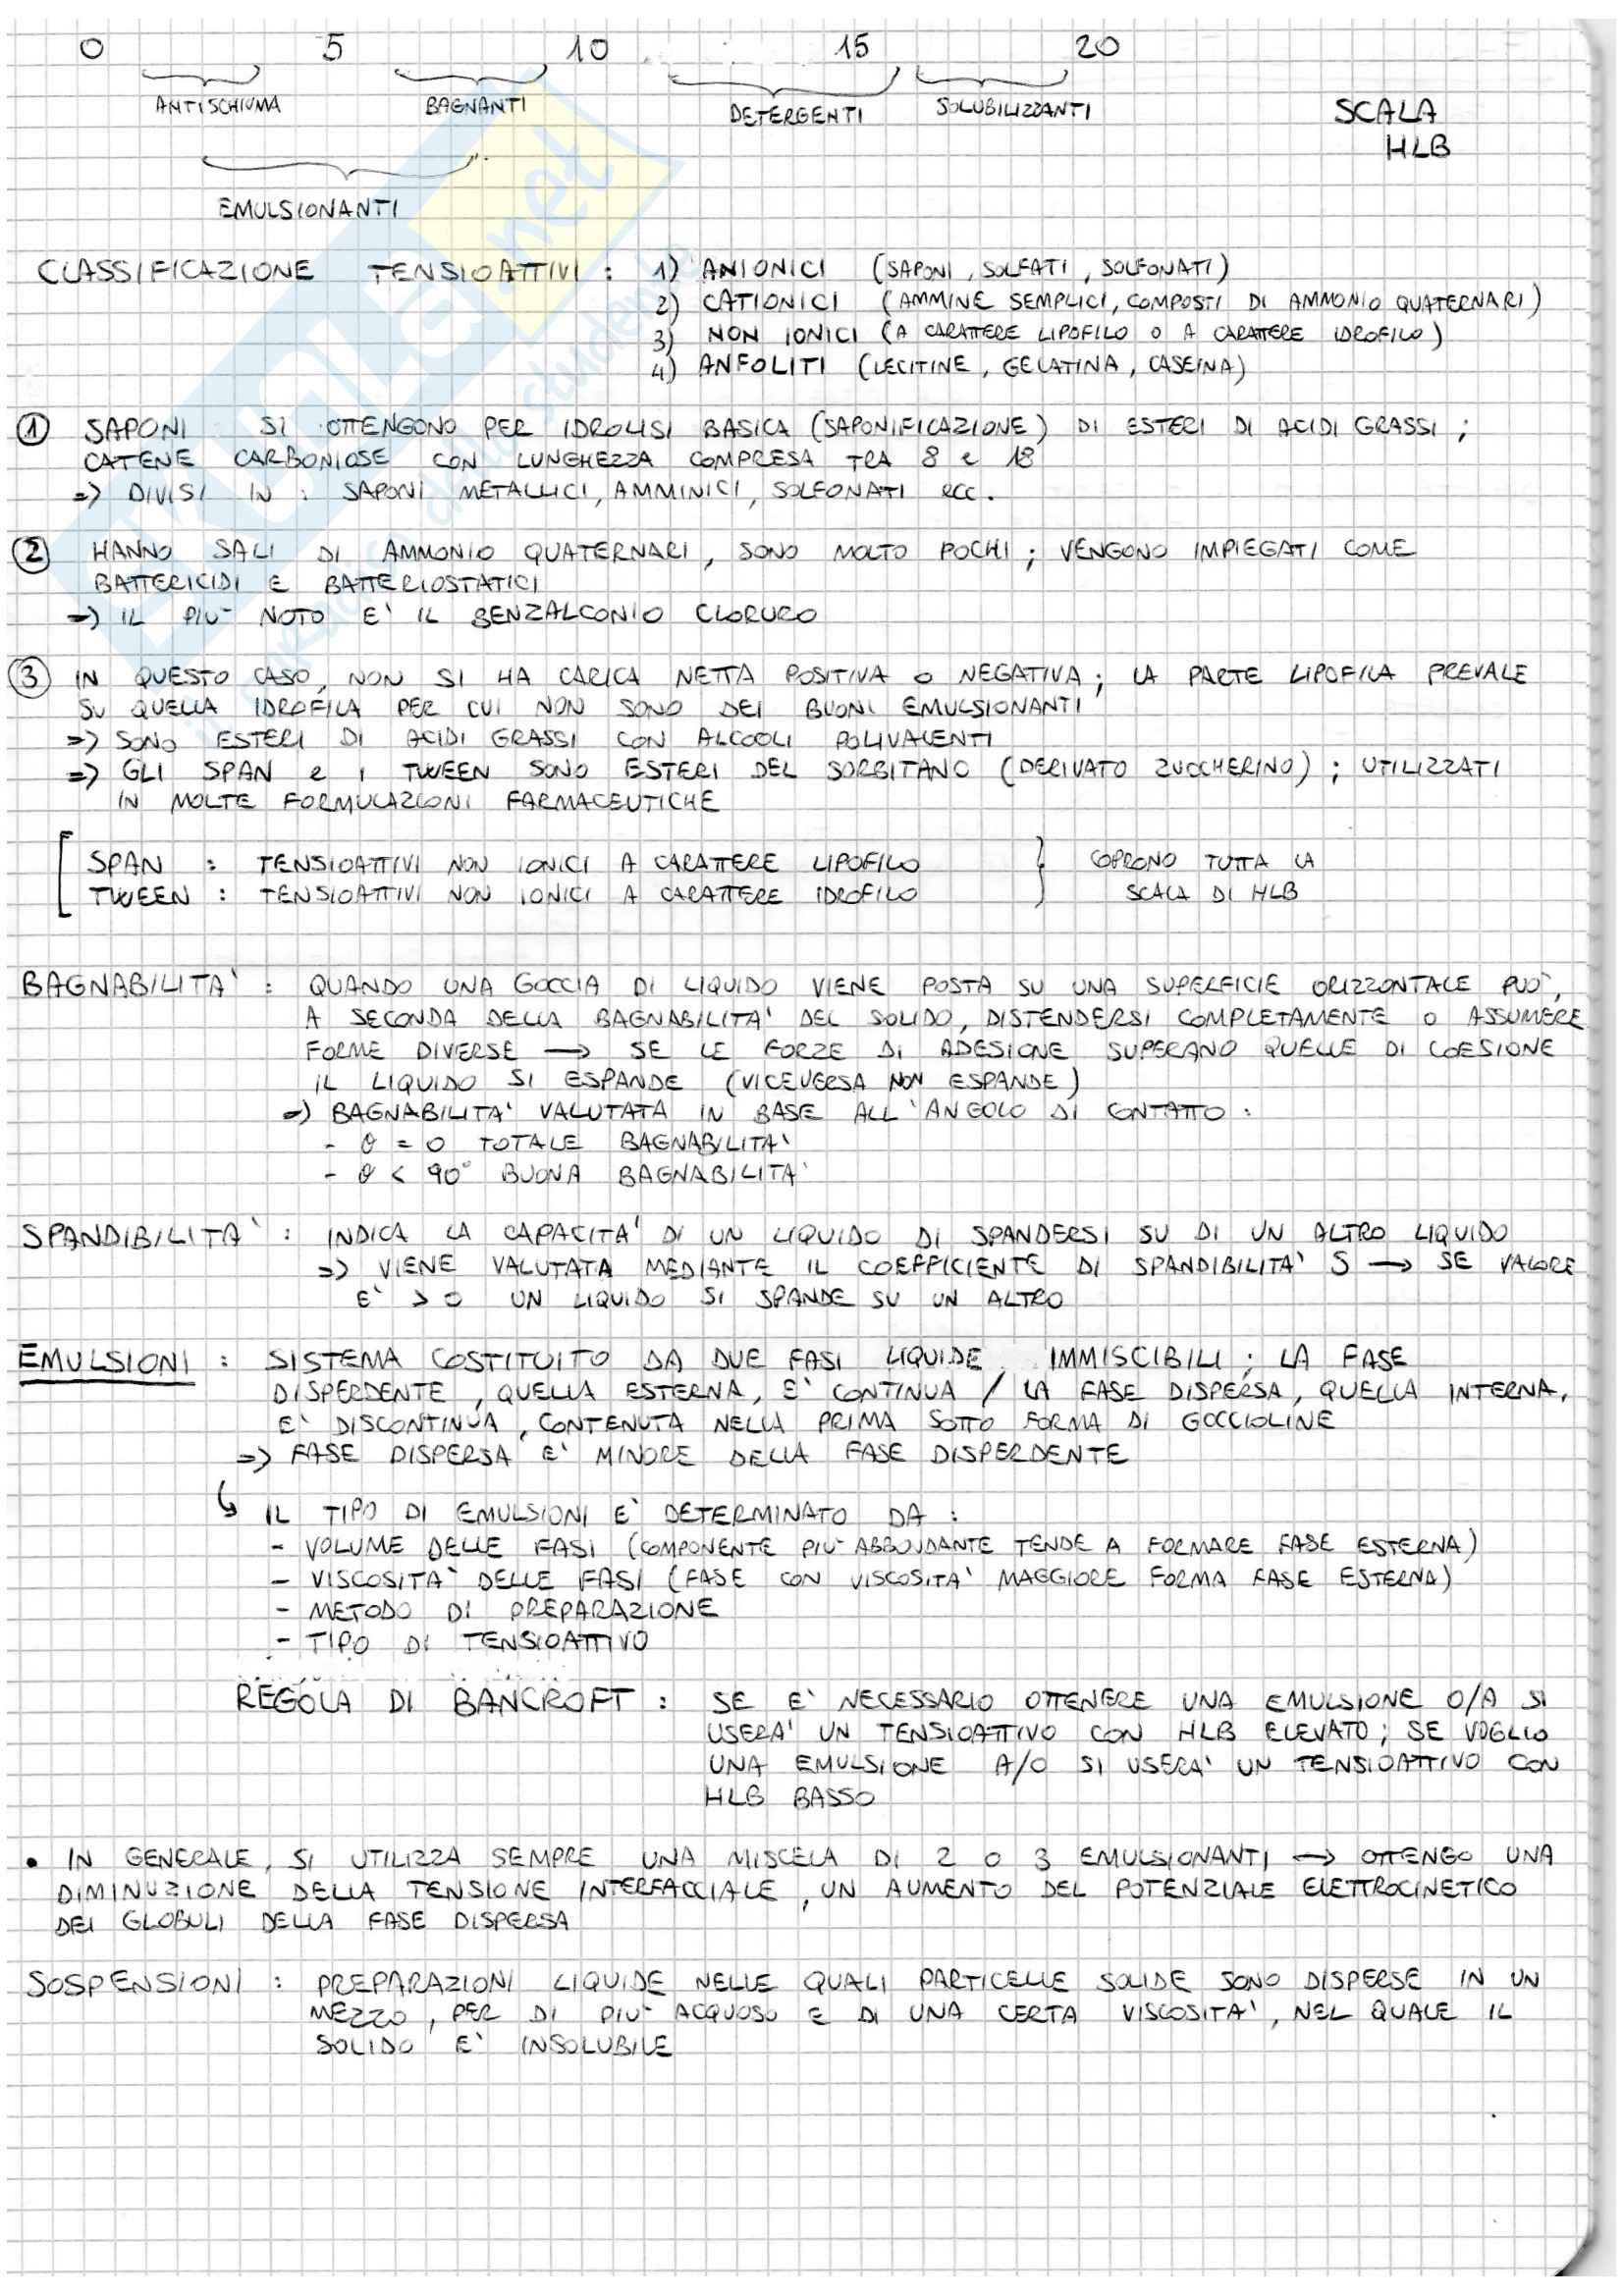 0 5 10 15 20
ANTISCHIUMA BAGNANTI DETERGENTI SOLUBILIZZANTI SCALA
HLB
EMULSIONANTI
CLASSIFICAZIONE TENSIOATTIVI : 1) ANIONICI (SAPONI, SOLFATI, SOLFONATI)
2) CATIONICI (AMMINE SEMPLICI, COMPOSTI DI AMMONIO QUATERNARI)
3) NON IONICI (A CARATTERE LIPOFILO O A CARATTERE IDROFILO)
4) ANFOLITI (LECITINE, GELATINA, CASEINA)
① SAPONI SI OTTENGONO PER IDROLISI BASICA (SAPONIFICAZIONE) DI ESTERI DI ACIDI GRASSI ;
CATENE CARBONIOSE CON LUNGHEZZA COMPRESA TRA 8 e 18
=> DIVISI IN : SAPONI METALLICI, AMMINICI, SOLFONATI ecc.
② HANNO SALI DI AMMONIO QUATERNARI, SONO MOLTO POCHI ; VENGONO IMPIEGATI COME
BATTERICIDI E BATTERIOSTATICI
=> IL PIU' NOTO E' IL BENZALCONIO CLORURO
③ IN QUESTO CASO, NON SI HA CARICA NETTA POSITIVA O NEGATIVA ; LA PARTE LIPOFILA PREVALE
SU QUELLA IDROFILA PER CUI NON SONO DEI BUONI EMULSIONANTI
=> SONO ESTERI DI ACIDI GRASSI CON ALCOOLI POLIVALENTI
=> GLI SPAN e I TWEEN SONO ESTERI DEL SORBITANO (DERIVATO ZUCCHERINO) ; UTILIZZATI
IN MOLTE FORMULAZIONI FARMACEUTICHE
SPAN : TENSIOATTIVI NON IONICI A CARATTERE LIPOFILO } COPRONO TUTTA LA
TWEEN : TENSIOATTIVI NON IONICI A CARATTERE IDROFILO SCALA DI HLB
BAGNABILITA' : QUANDO UNA GOCCIA DI LIQUIDO VIENE POSTA SU UNA SUPERFICIE ORIZZONTALE PUO',
A SECONDA DELLA BAGNABILITA' DEL SOLIDO, DISTENDERSI COMPLETAMENTE O ASSUMERE
FORME DIVERSE → SE LE FORZE DI ADESIONE SUPERANO QUELLE DI COESIONE
IL LIQUIDO SI ESPANDE (VICEVERSA NON ESPANDE)
=> BAGNABILITA' VALUTATA IN BASE ALL'ANGOLO DI CONTATTO :
- θ = 0 TOTALE BAGNABILITA'
- θ < 90° BUONA BAGNABILITA'
SPANDIBILITA' : INDICA LA CAPACITA' DI UN LIQUIDO DI SPANDERSI SU DI UN ALTRO LIQUIDO
=> VIENE VALUTATA MEDIANTE IL COEFFICIENTE DI SPANDIBILITA' S → SE VALORE
E' > 0 UN LIQUIDO SI SPANDE SU UN ALTRO
EMULSIONI : SISTEMA COSTITUITO DA DUE FASI LIQUIDE IMMISCIBILI ; LA FASE
DISPERDENTE, QUELLA ESTERNA, E' CONTINUA / LA FASE DISPERSA, QUELLA INTERNA,
E' DISCONTINUA, CONTENUTA NELLA PRIMA SOTTO FORMA DI GOCCIOLINE
=> FASE DISPERSA E' MINORE DELLA FASE DISPERDENTE
↳ IL TIPO DI EMULSIONI E' DETERMINATO DA :
- VOLUME DELLE FASI (COMPONENTE PIU' ABBONDANTE TENDE A FORMARE FASE ESTERNA)
- VISCOSITA' DELLE FASI (FASE CON VISCOSITA' MAGGIORE FORMA FASE ESTERNA)
- METODO DI PREPARAZIONE
- TIPO DI TENSIOATTIVO
REGOLA DI BANCROFT : SE E' NECESSARIO OTTENERE UNA EMULSIONE O/A SI
USERA' UN TENSIOATTIVO CON HLB ELEVATO ; SE VOGLIO
UNA EMULSIONE A/O SI USERA' UN TENSIOATTIVO CON
HLB BASSO
• IN GENERALE, SI UTILIZZA SEMPRE UNA MISCELA DI 2 O 3 EMULSIONANTI → OTTENGO UNA
DIMINUZIONE DELLA TENSIONE INTERFACCIALE, UN AUMENTO DEL POTENZIALE ELETTROCINETICO
DEI GLOBULI DELLA FASE DISPERSA
SOSPENSIONI : PREPARAZIONI LIQUIDE NELLE QUALI PARTICELLE SOLIDE SONO DISPERSE IN UN
MEZZO, PER DI PIU' ACQUOSO E DI UNA CERTA VISCOSITA', NEL QUALE IL
SOLIDO E' INSOLUBILE